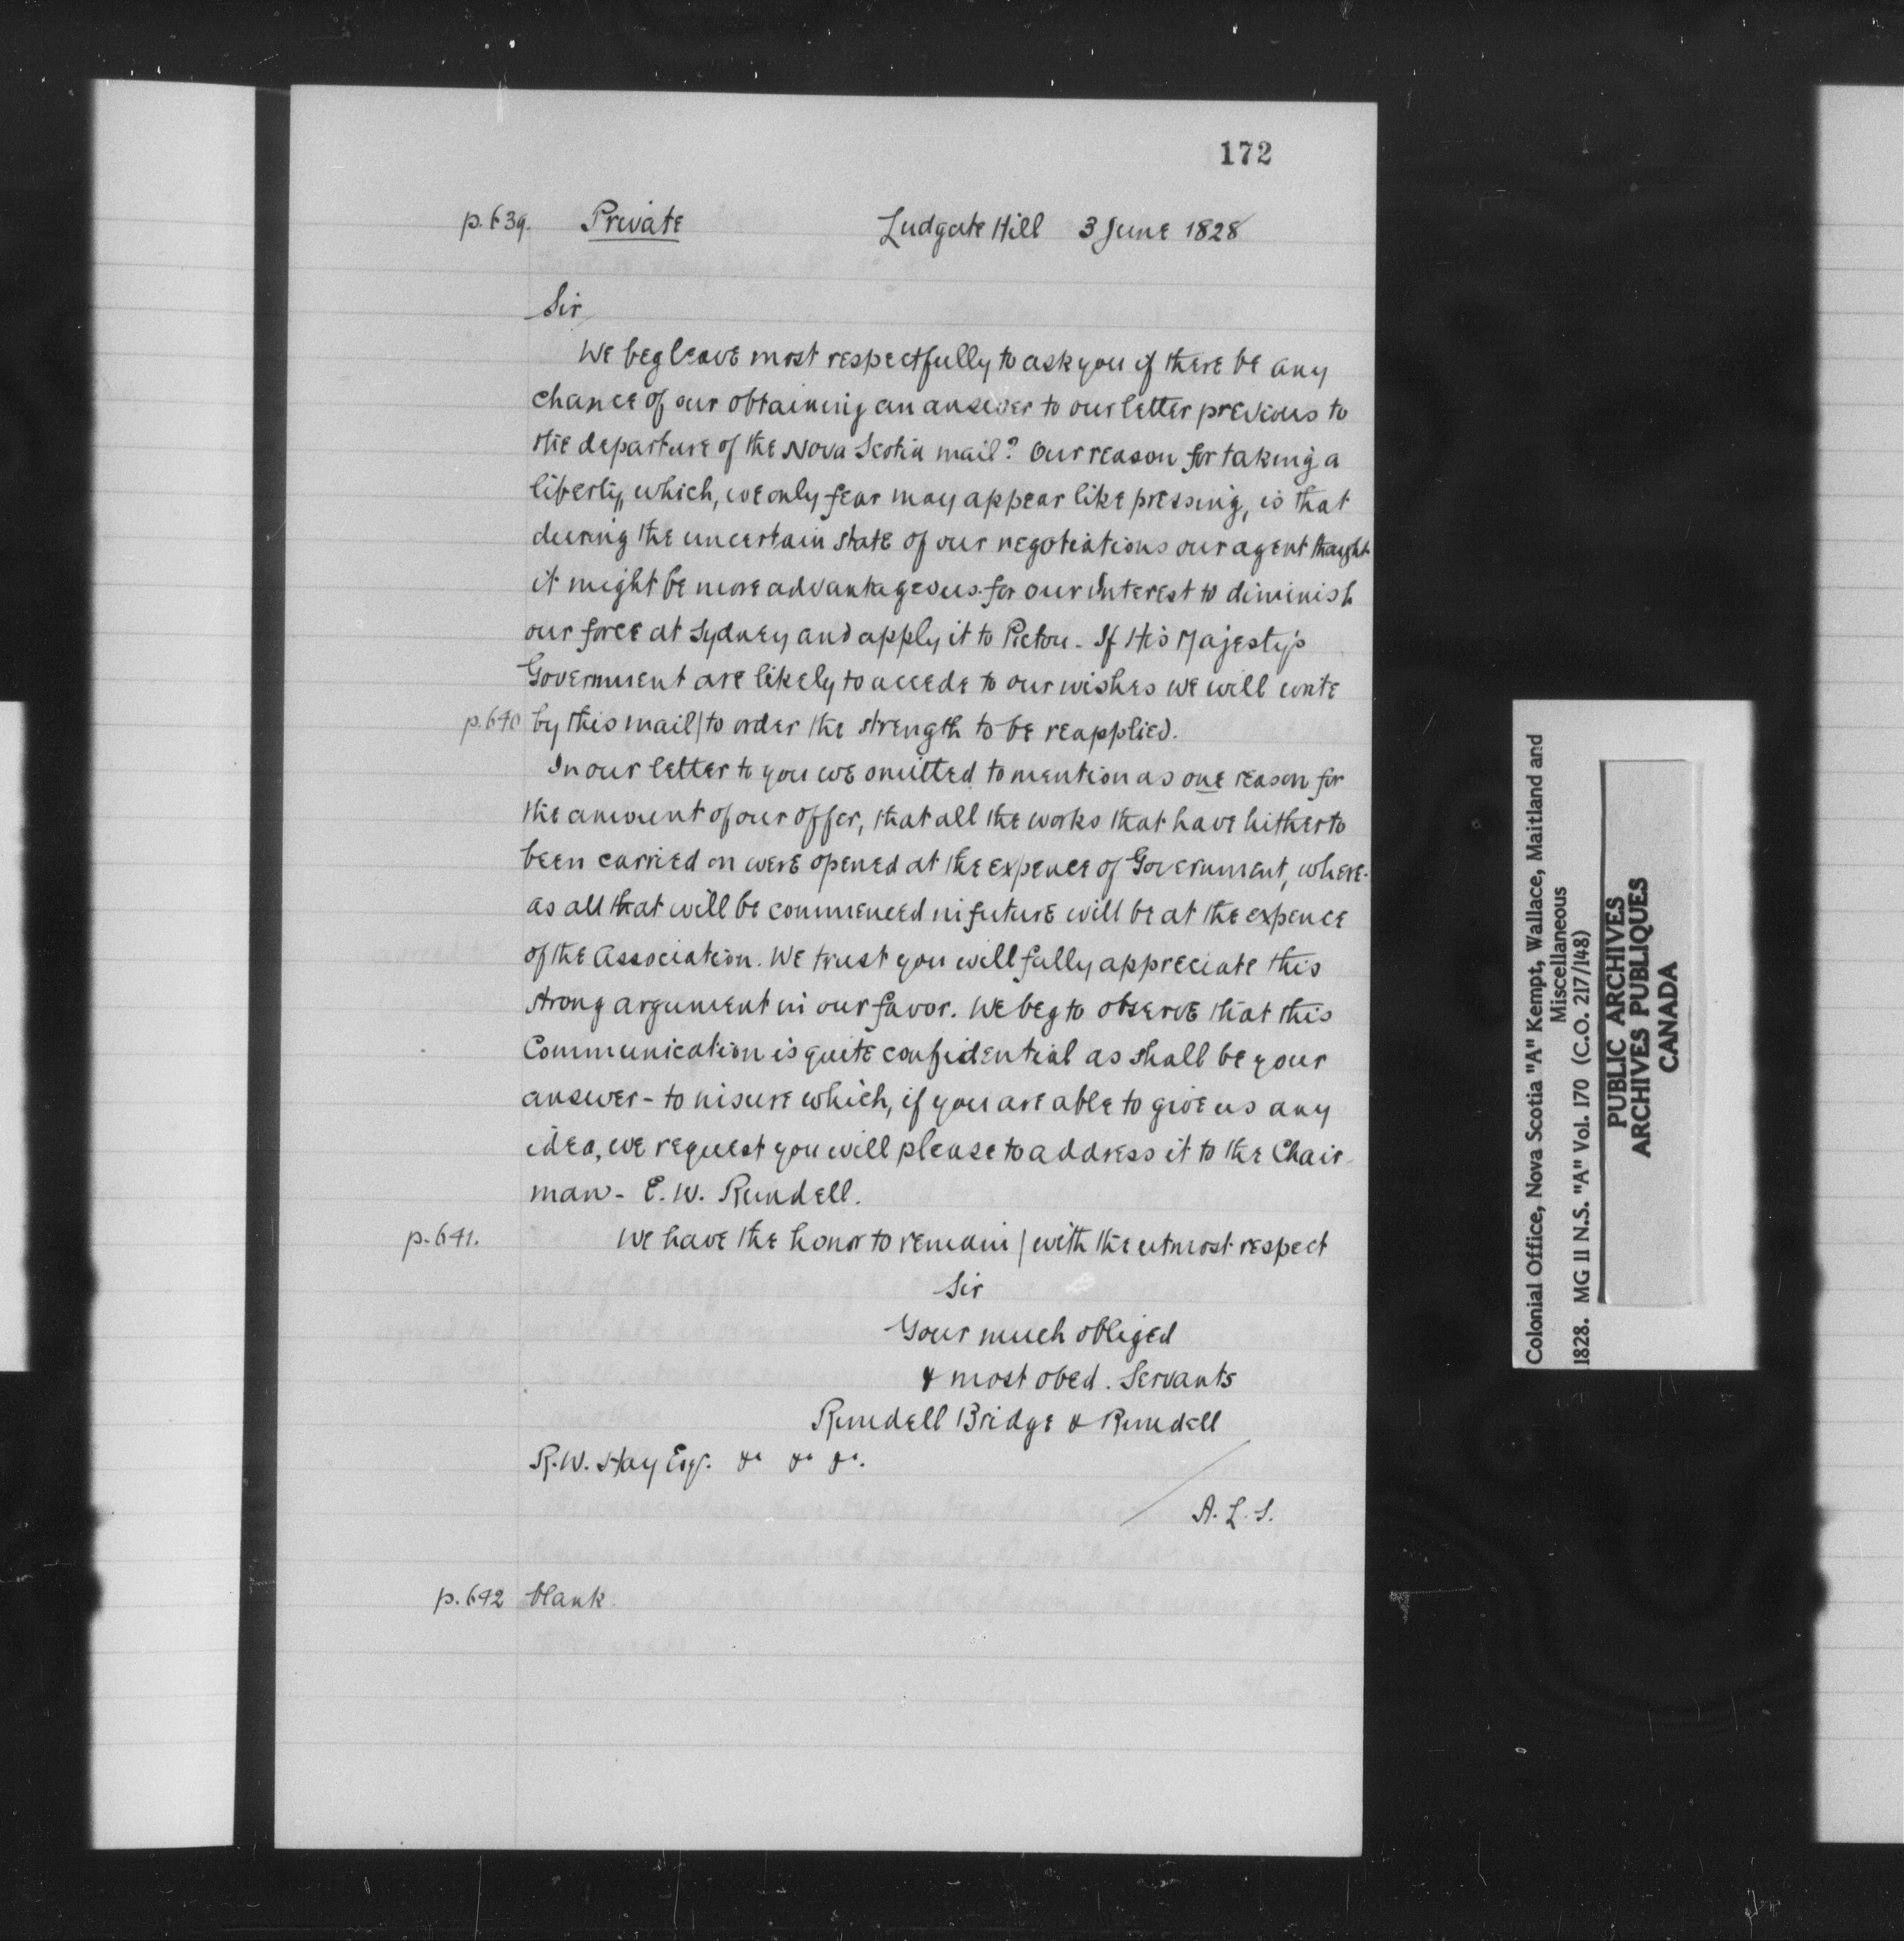 172
p.639. Private Ludgate Hill 3 June 1828
Sir,
We beg leave most respectfully to ask you if there be any
chance of our obtaining an answer to our letter previous to
the departure of the Nova Scotia mail? Our reason for taking a
liberty, which, we only fear may appear like pressing, is that
during the uncertain state of our negotiations our agent thought
it might be more advantageous for our interest to diminish
our force at Sydney and apply it to Pictou - If His Majesty's
Government are likely to accede to our wishes we will write
p.640 by this mail | to order the strength to be reapplied.
In our letter to you we omitted to mention as one reason for
the amount of our offer, that all the works that have hitherto
been carried on were opened at the expence of Government, where-
as all that will be commenced in future will be at the expence
of the Association. We trust you will fully appreciate this
strong argument in our favor. We beg to observe that this
Communication is quite confidential as shall be your
answer - to insure which, if you are able to give us any
idea, we request you will please to address it to the Chair-
man - E. W. Rundell.
p.641. We have the honor to remain | with the utmost respect
Sir
Your much obliged
& most obed. Servants
Rundell Bridge & Rundell
R.W. Hay Esqr. &c &c &c.
A. L. S.
p.642 blank
Colonial Office, Nova Scotia "A" Kempt, Wallace, Maitland and
Miscellaneous
1828. MG 11 N.S. "A" Vol. 170 (C.O. 217/148)
PUBLIC ARCHIVES
ARCHIVES PUBLIQUES
CANADA